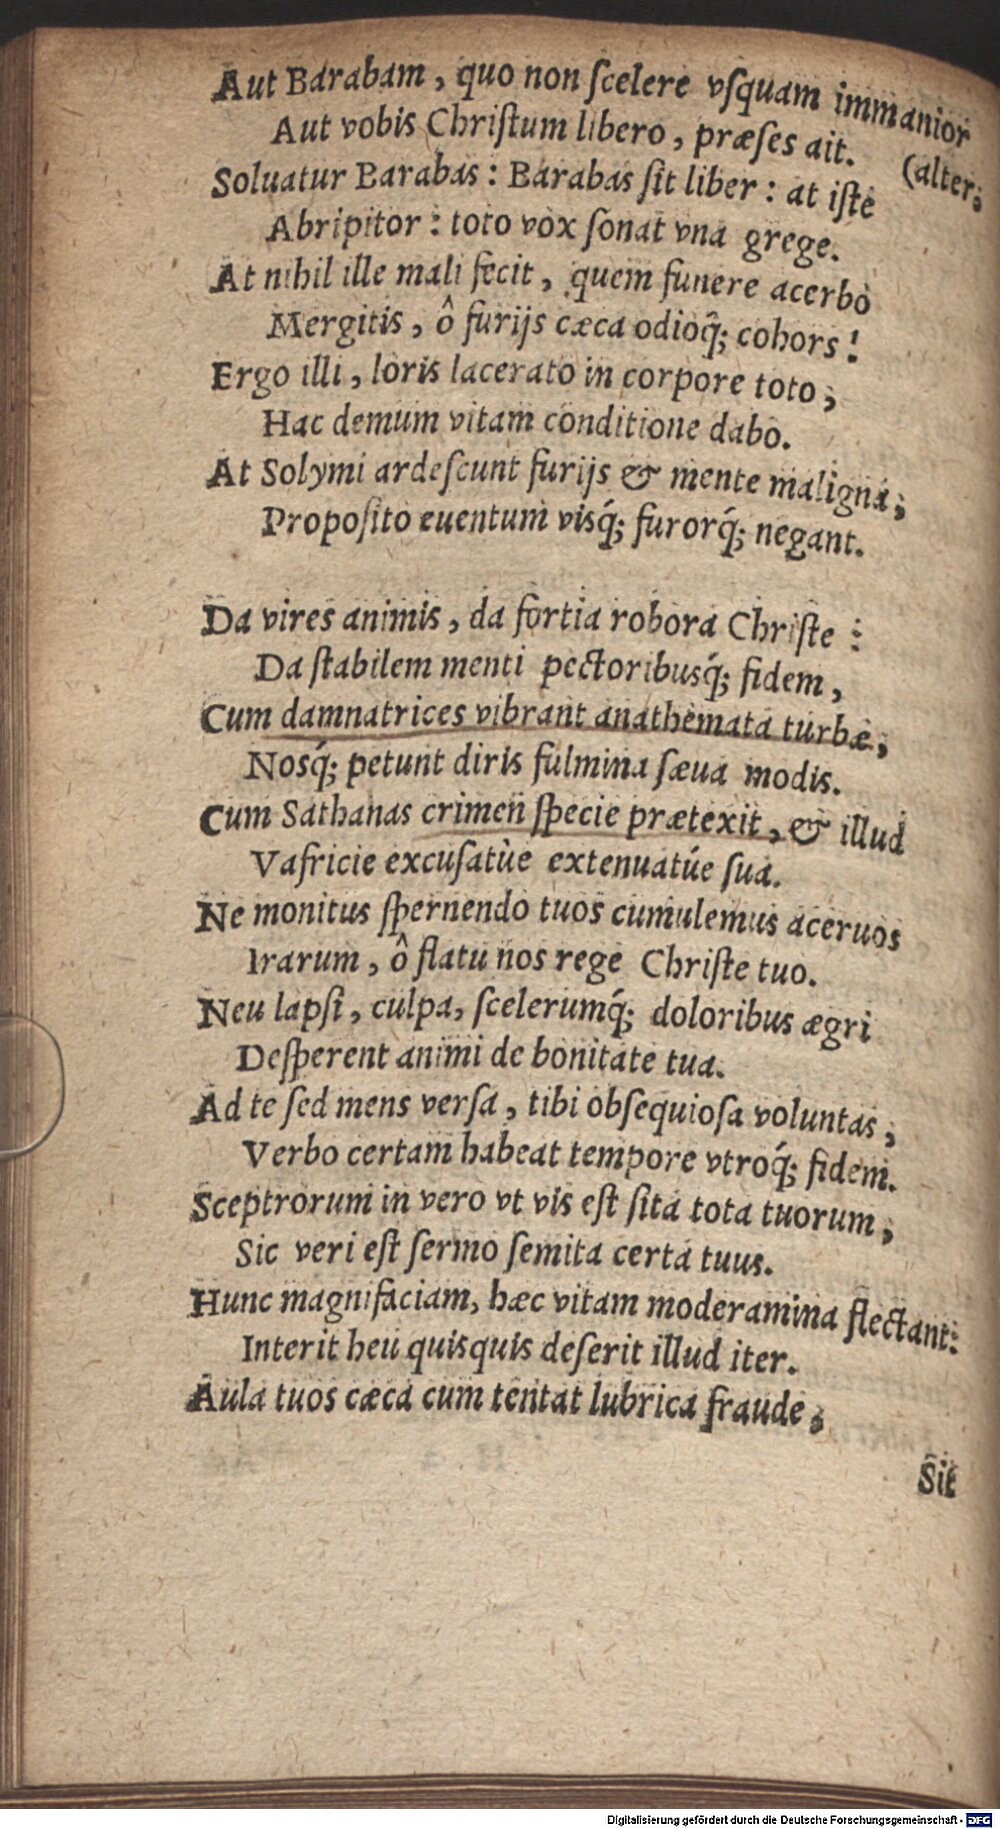 Aut Barabam, quo non ſcelere vſquam immanior
Aut vobis Chriſtum libero, præſes ait. (alter;
Soluatur Barabas: Barabas ſit liber: at iſte
Abripitor: toto vox ſonat vna grege.
At nihil ille mali fecit, quem funere acerbo
Mergitis, ô furijs cæca odioq́; cohors!
Ergo illi, loris lacerato in corpore toto;
Hac demum vitam conditione dabo.
At Solymi ardeſcunt furijs & mente maligna;
Propoſito euentum viſq́; furorq́; negant.
Da vires animis, da fortia robora Chriſte:
Da ſtabilem menti pectoribusq́; fidem,
Cum damnatrices vibrant anathemata turbæ,
Nosq́; petunt diris fulmina ſæua modis.
Cum Sathanas crimen ſpecie prætexit, & illud
Vafricie excuſatùe extenuatúe ſua.
Ne monitus ſpernendo tuos cumulemus aceruos
Irarum, ô flatu nos rege Chriſte tuo.
Neu lapſi, culpa, ſcelerumq́; doloribus ægri
Deſperent animi de bonitate tua.
Ad te ſed mens verſa, tibi obſequioſa voluntas,
Verbo certam habeat tempore vtroq́; fidem.
Sceptrorum in vero vt vis eſt ſita tota tuorum,
Sic veri eſt ſermo ſemita certa tuus.
Hunc magnifaciam, hæc vitam moderamina flectant:
Interit heu quisquis deſerit illud iter.
Aula tuos cæca cum tentat lubrica fraude,
Sit
Digitalisierung gefördert durch die Deutsche Forschungsgemeinschaft - DFG